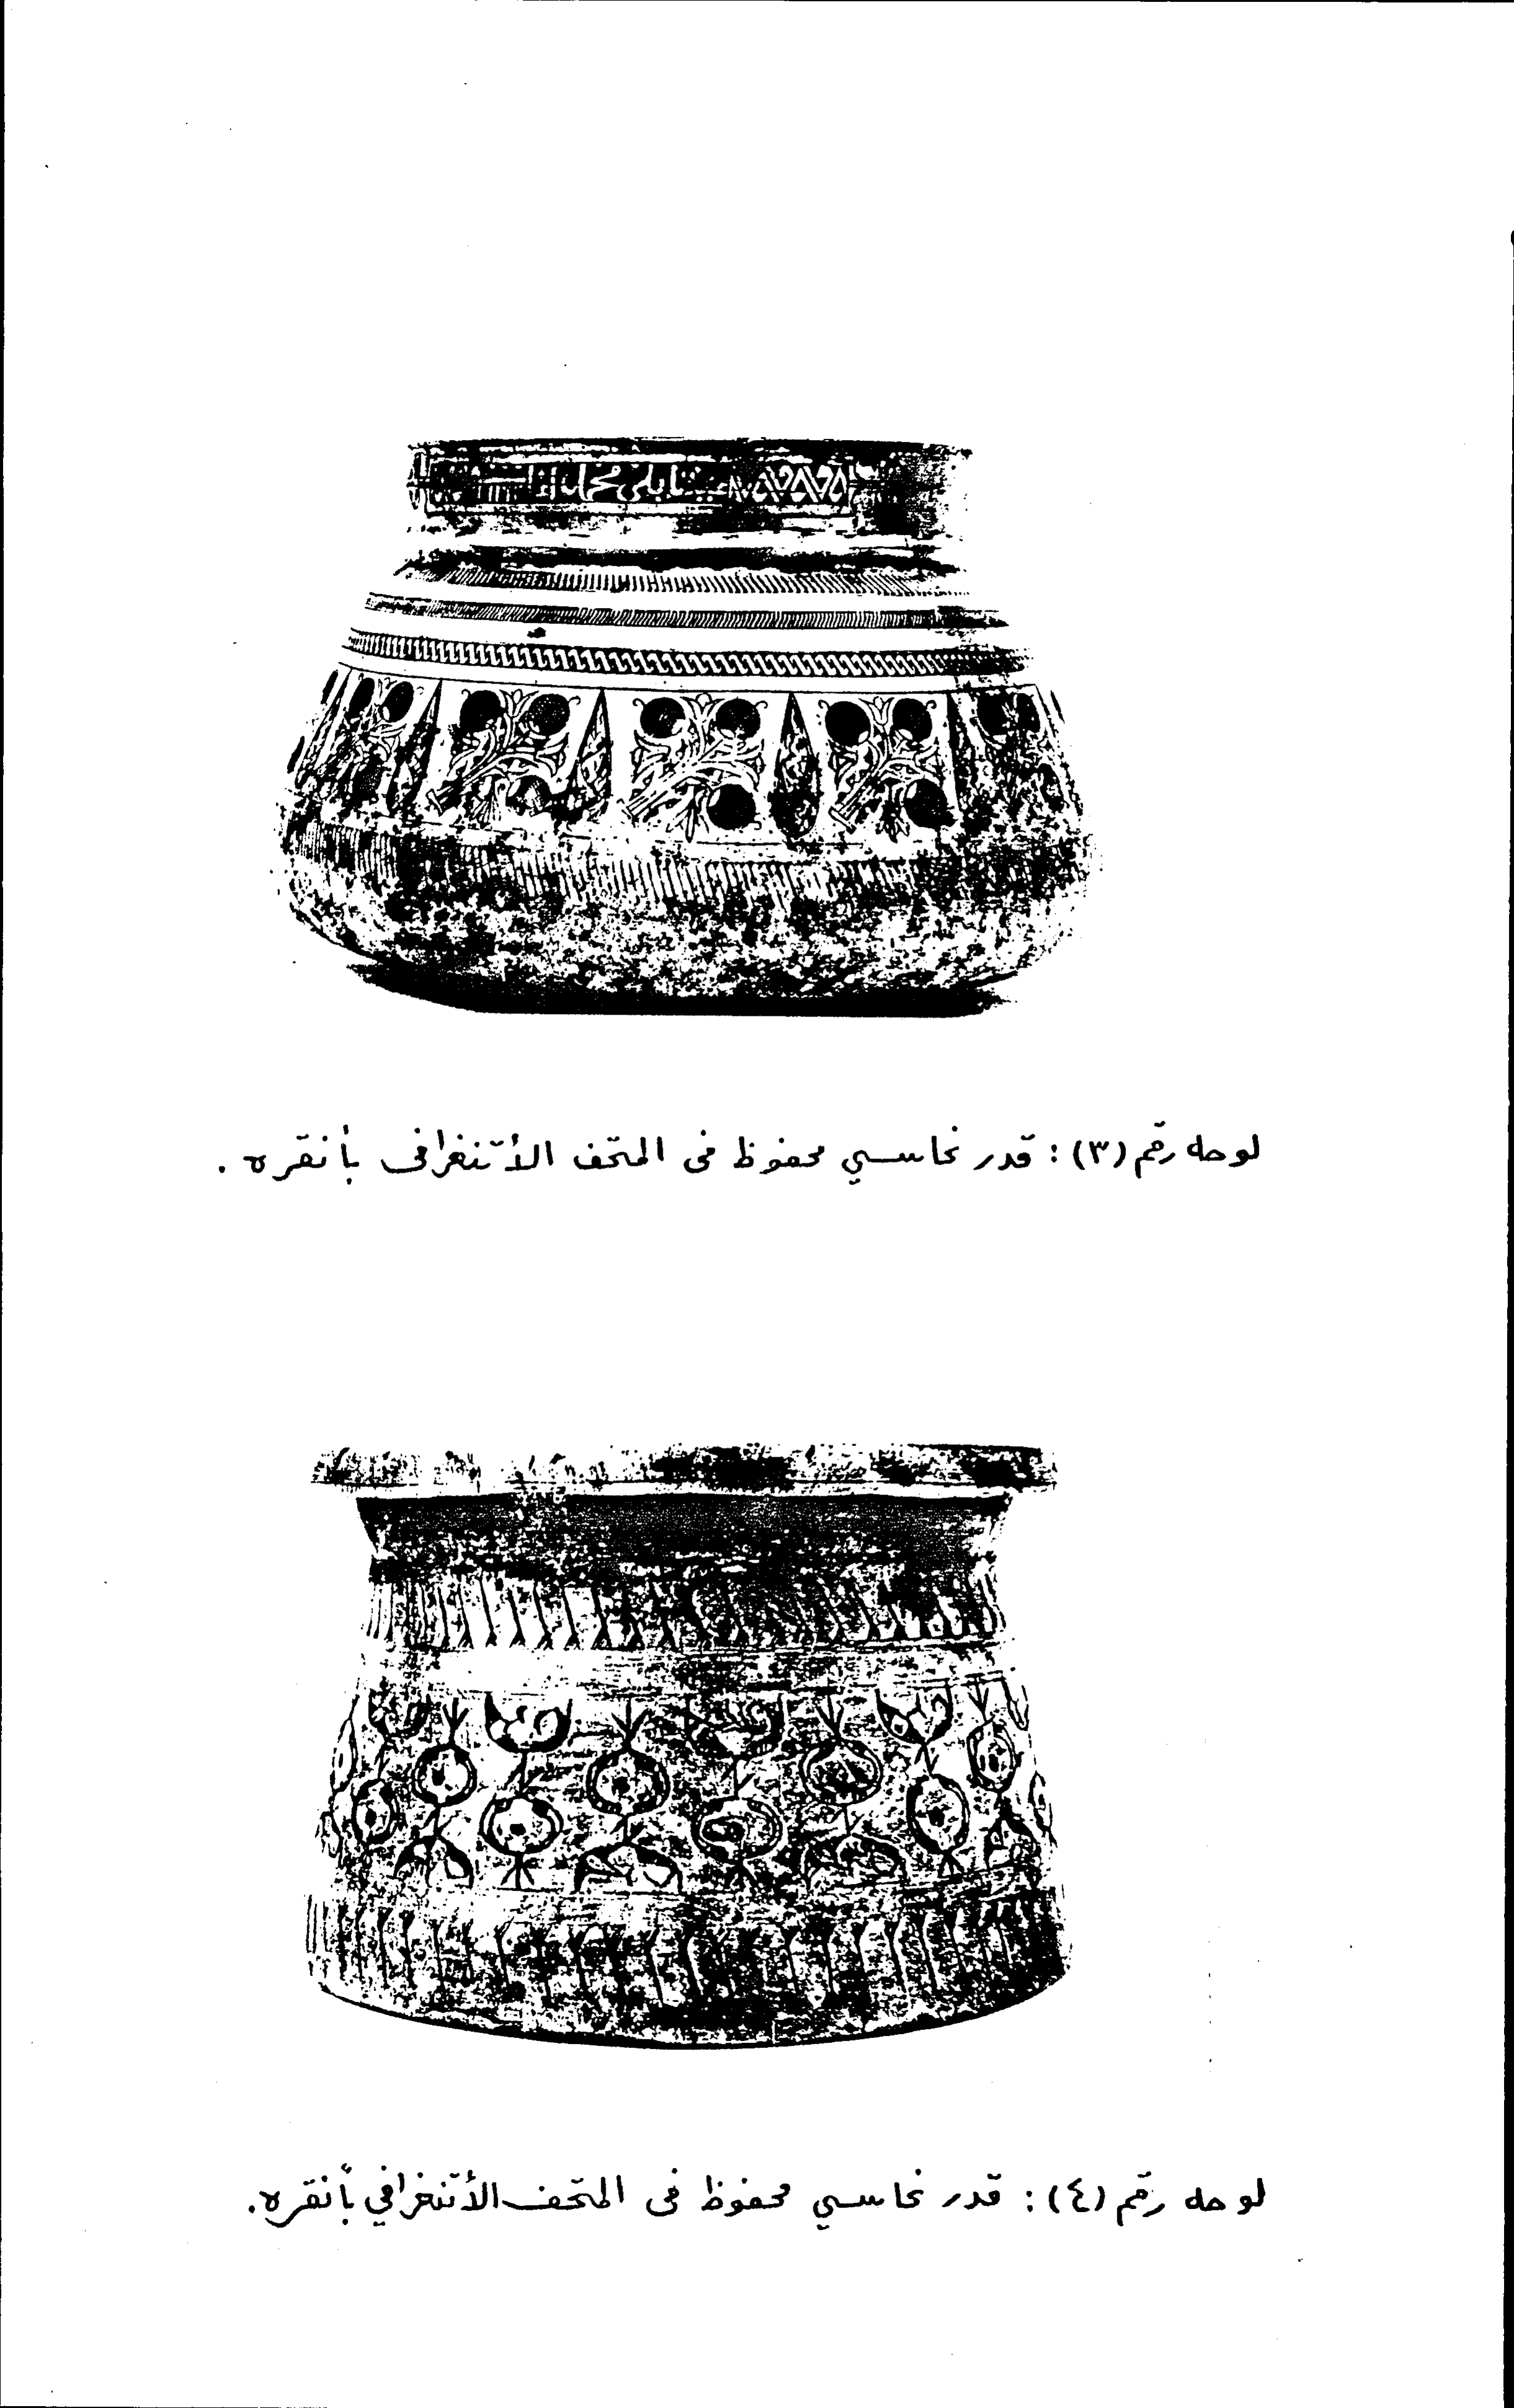 لوحه رقم (٣) : قدر نحاسي محفوظ فى المتحف الأتنغرافى بأنقره .
لوحه رقم (٤) : قدر نحاسي محفوظ فى المتحف الأتنغرافي بأنقره .